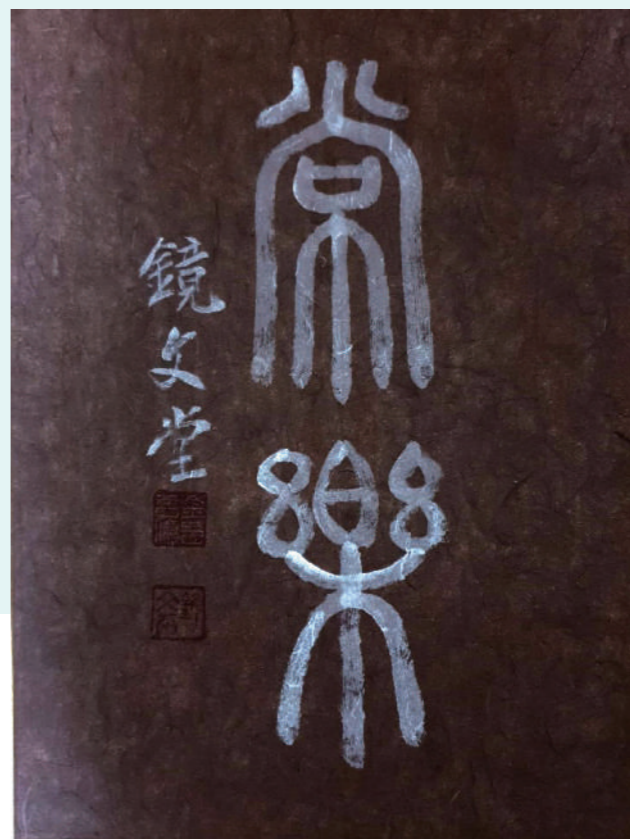 常樂
鏡文堂